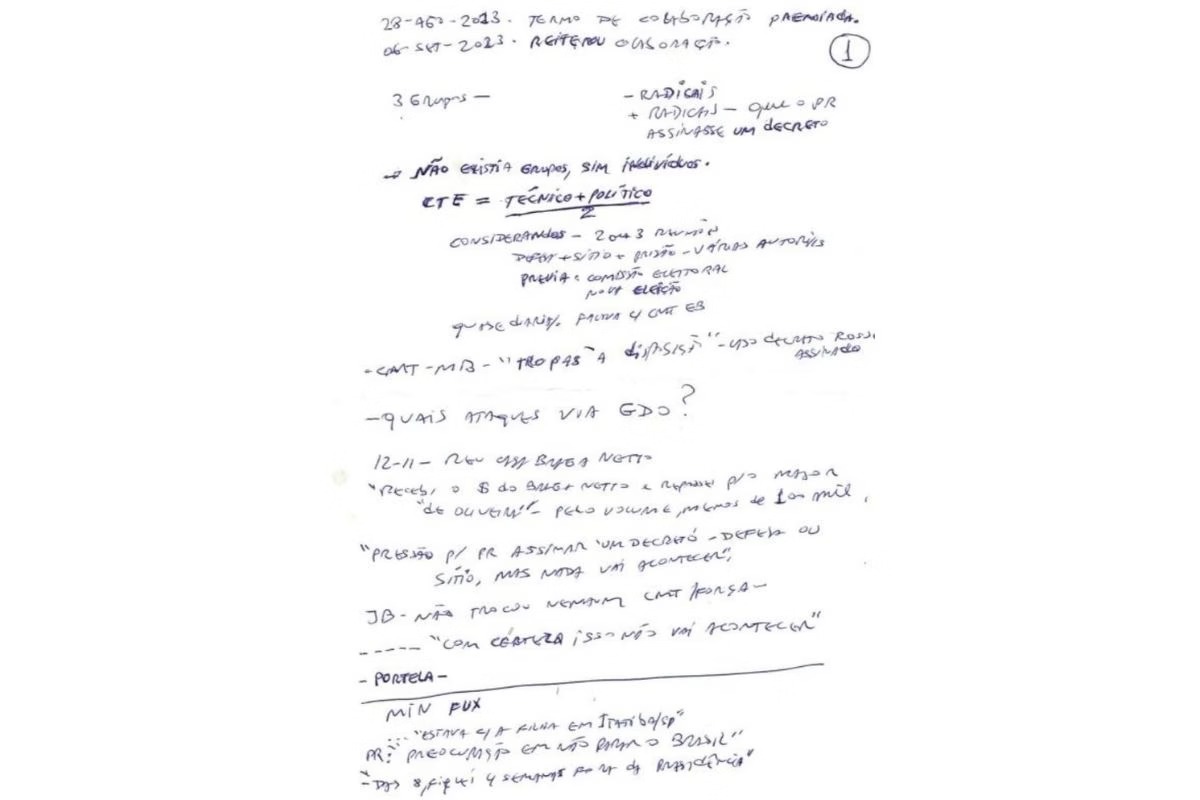 28-AGO-2023. TERMO DE COLABORAÇÃO PREMIADA.
06-SET-2023. REITEROU COLABORAÇÃO.
1
3 GRUPOS —
- RADICAIS
+ RADICAIS — QUE O PR
ASSINASSE UM DECRETO
→ NÃO EXISTIA GRUPOS, SIM INDIVÍDUOS.
CTE = TÉCNICO+POLÍTICO
2
CONSIDERANDOS — 2 OU 3 REUNIÕES
DEFESA+SÍTIO+ PRISÃO - VÁRIAS AUTORIDS
PREVIA: COMISSÃO ELEITORAL
NOVA ELEIÇÃO
QUASE DARIA/. FALAVA C/ CMT EB
- CMT-MB - "TROPAS À DISPOSIÇÃO" - DECRETO FOSSE
ASSINADO
- QUAIS ATAQUES VIA GDO?
12-11 - REU CASA BRAGA NETTO
"RECEBI O $ DO BRAGA NETTO E REPASSEI P/O MAJOR
"DE OLIVEIRA" - PELO VOLUME, MENOS DE 100 MIL.
"PRESSÃO P/ PR ASSINAR "UM DECRETO" - DEFESA OU
SÍTIO, MAS NADA VAI ACONTECER",
JB - NÃO TROCOU NENHUM CMT/FORÇA —
----- "COM CERTEZA ISSO NÃO VAI ACONTECER"
- PORTELA -
MIN FUX
... "ESTAVA C/ A FILHA EM ITATIBA/SP"
PR: "PREOCUPAÇÃO EM NÃO PARAR O BRASIL"
- "DAS 8, FIQUEI 4 SEMANAS FORA DA PRESIDÊNCIA"